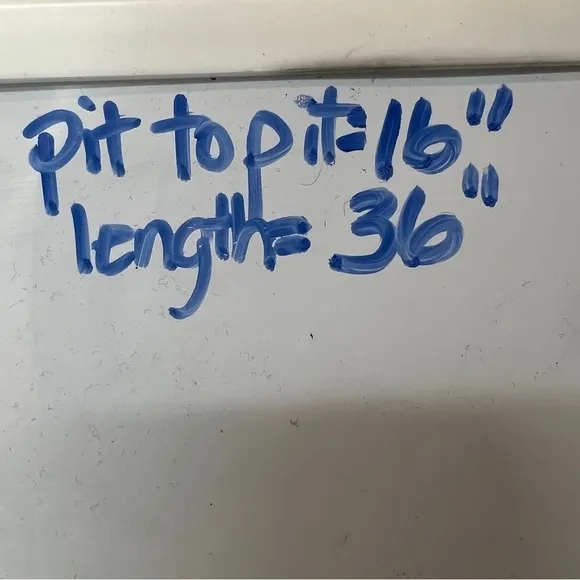 pit to pit=16"
length= 36"